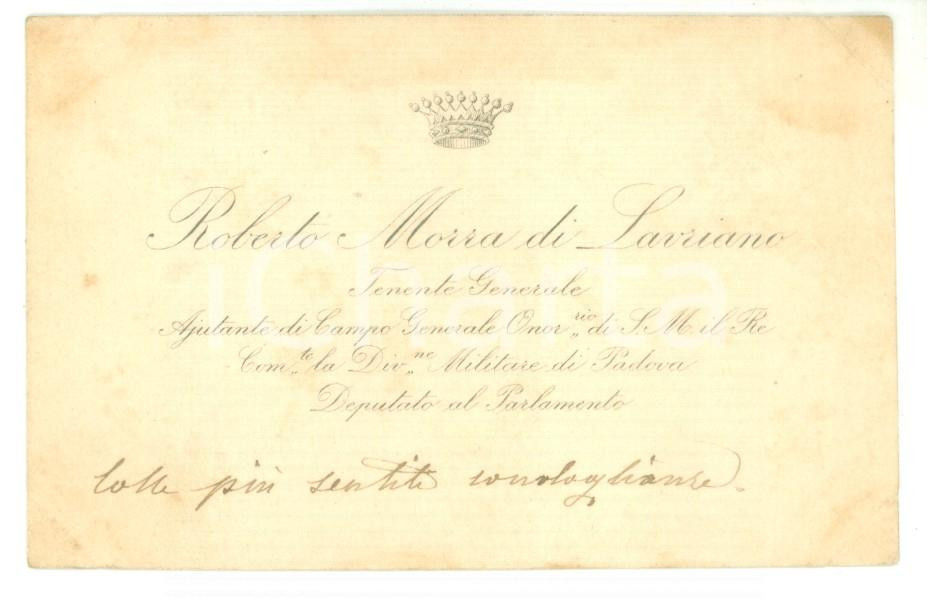 Roberto Morra di Lavriano
Tenente Generale
Ajutante di Campo Generale Onor.rio di S. M. il Re
Com.te la Div.ne Militare di Padova
Deputato al Parlamento
Colle più sentite condoglianze.
iCharta